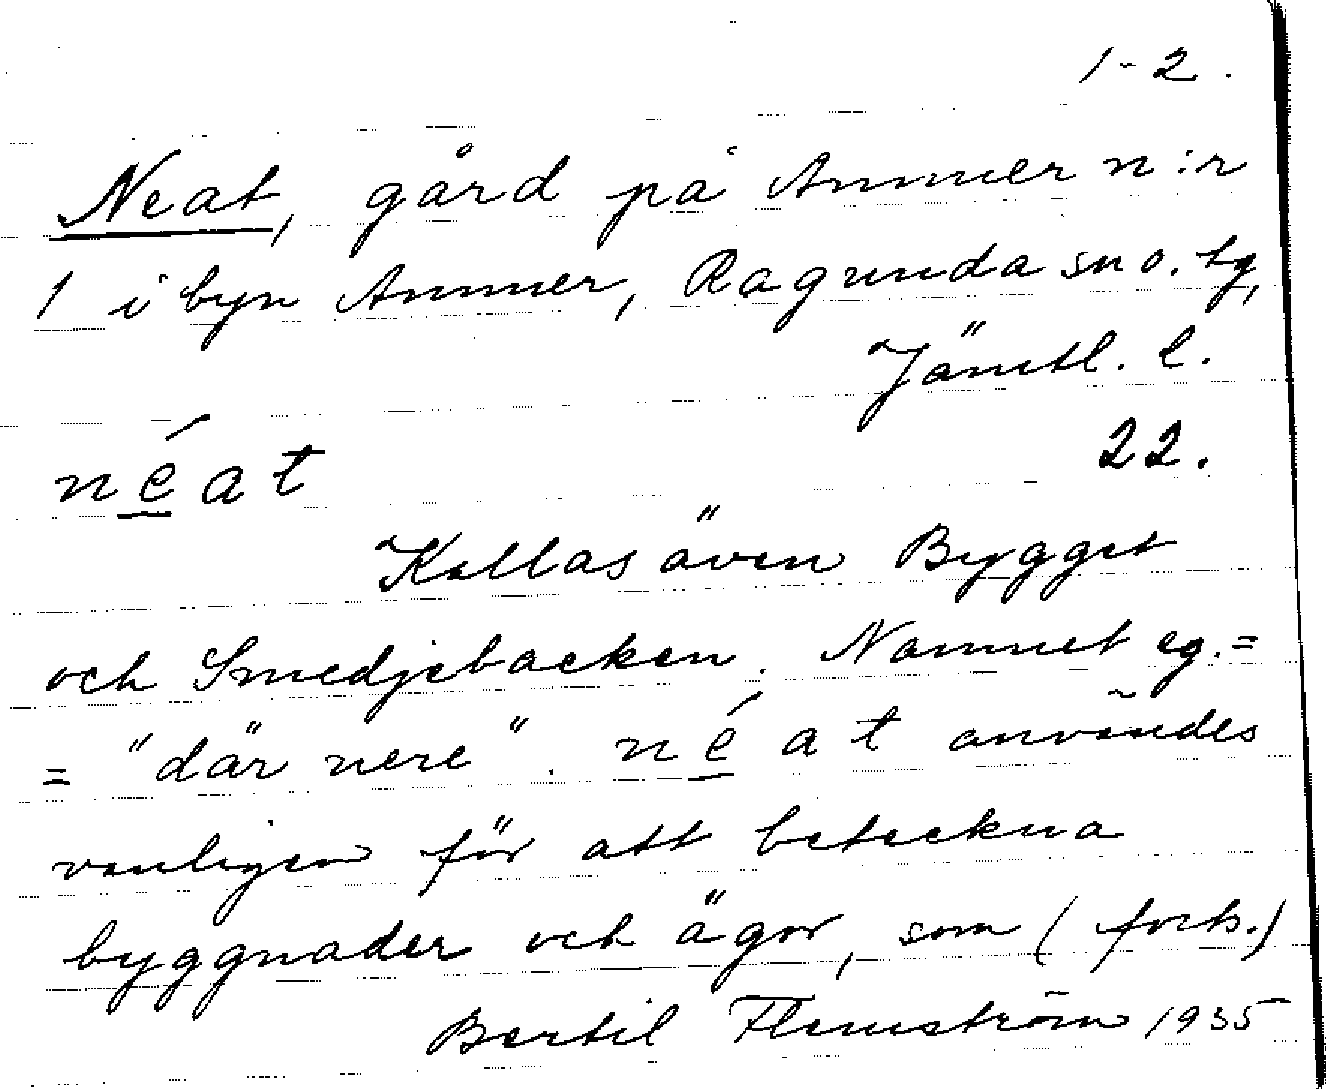 1-2.
Neat, gård på Ammer n:r
1 i byn Ammer, Ragunda sn o. tg,
Jämtl. l.
néat 22.
Kallas även Bygget
och Smedjebacken. Namnet eg. =
= "där nere". néat användes
vanligen för att beteckna
byggnader och ägor, som (forts.)
Bertil Flemström 1935